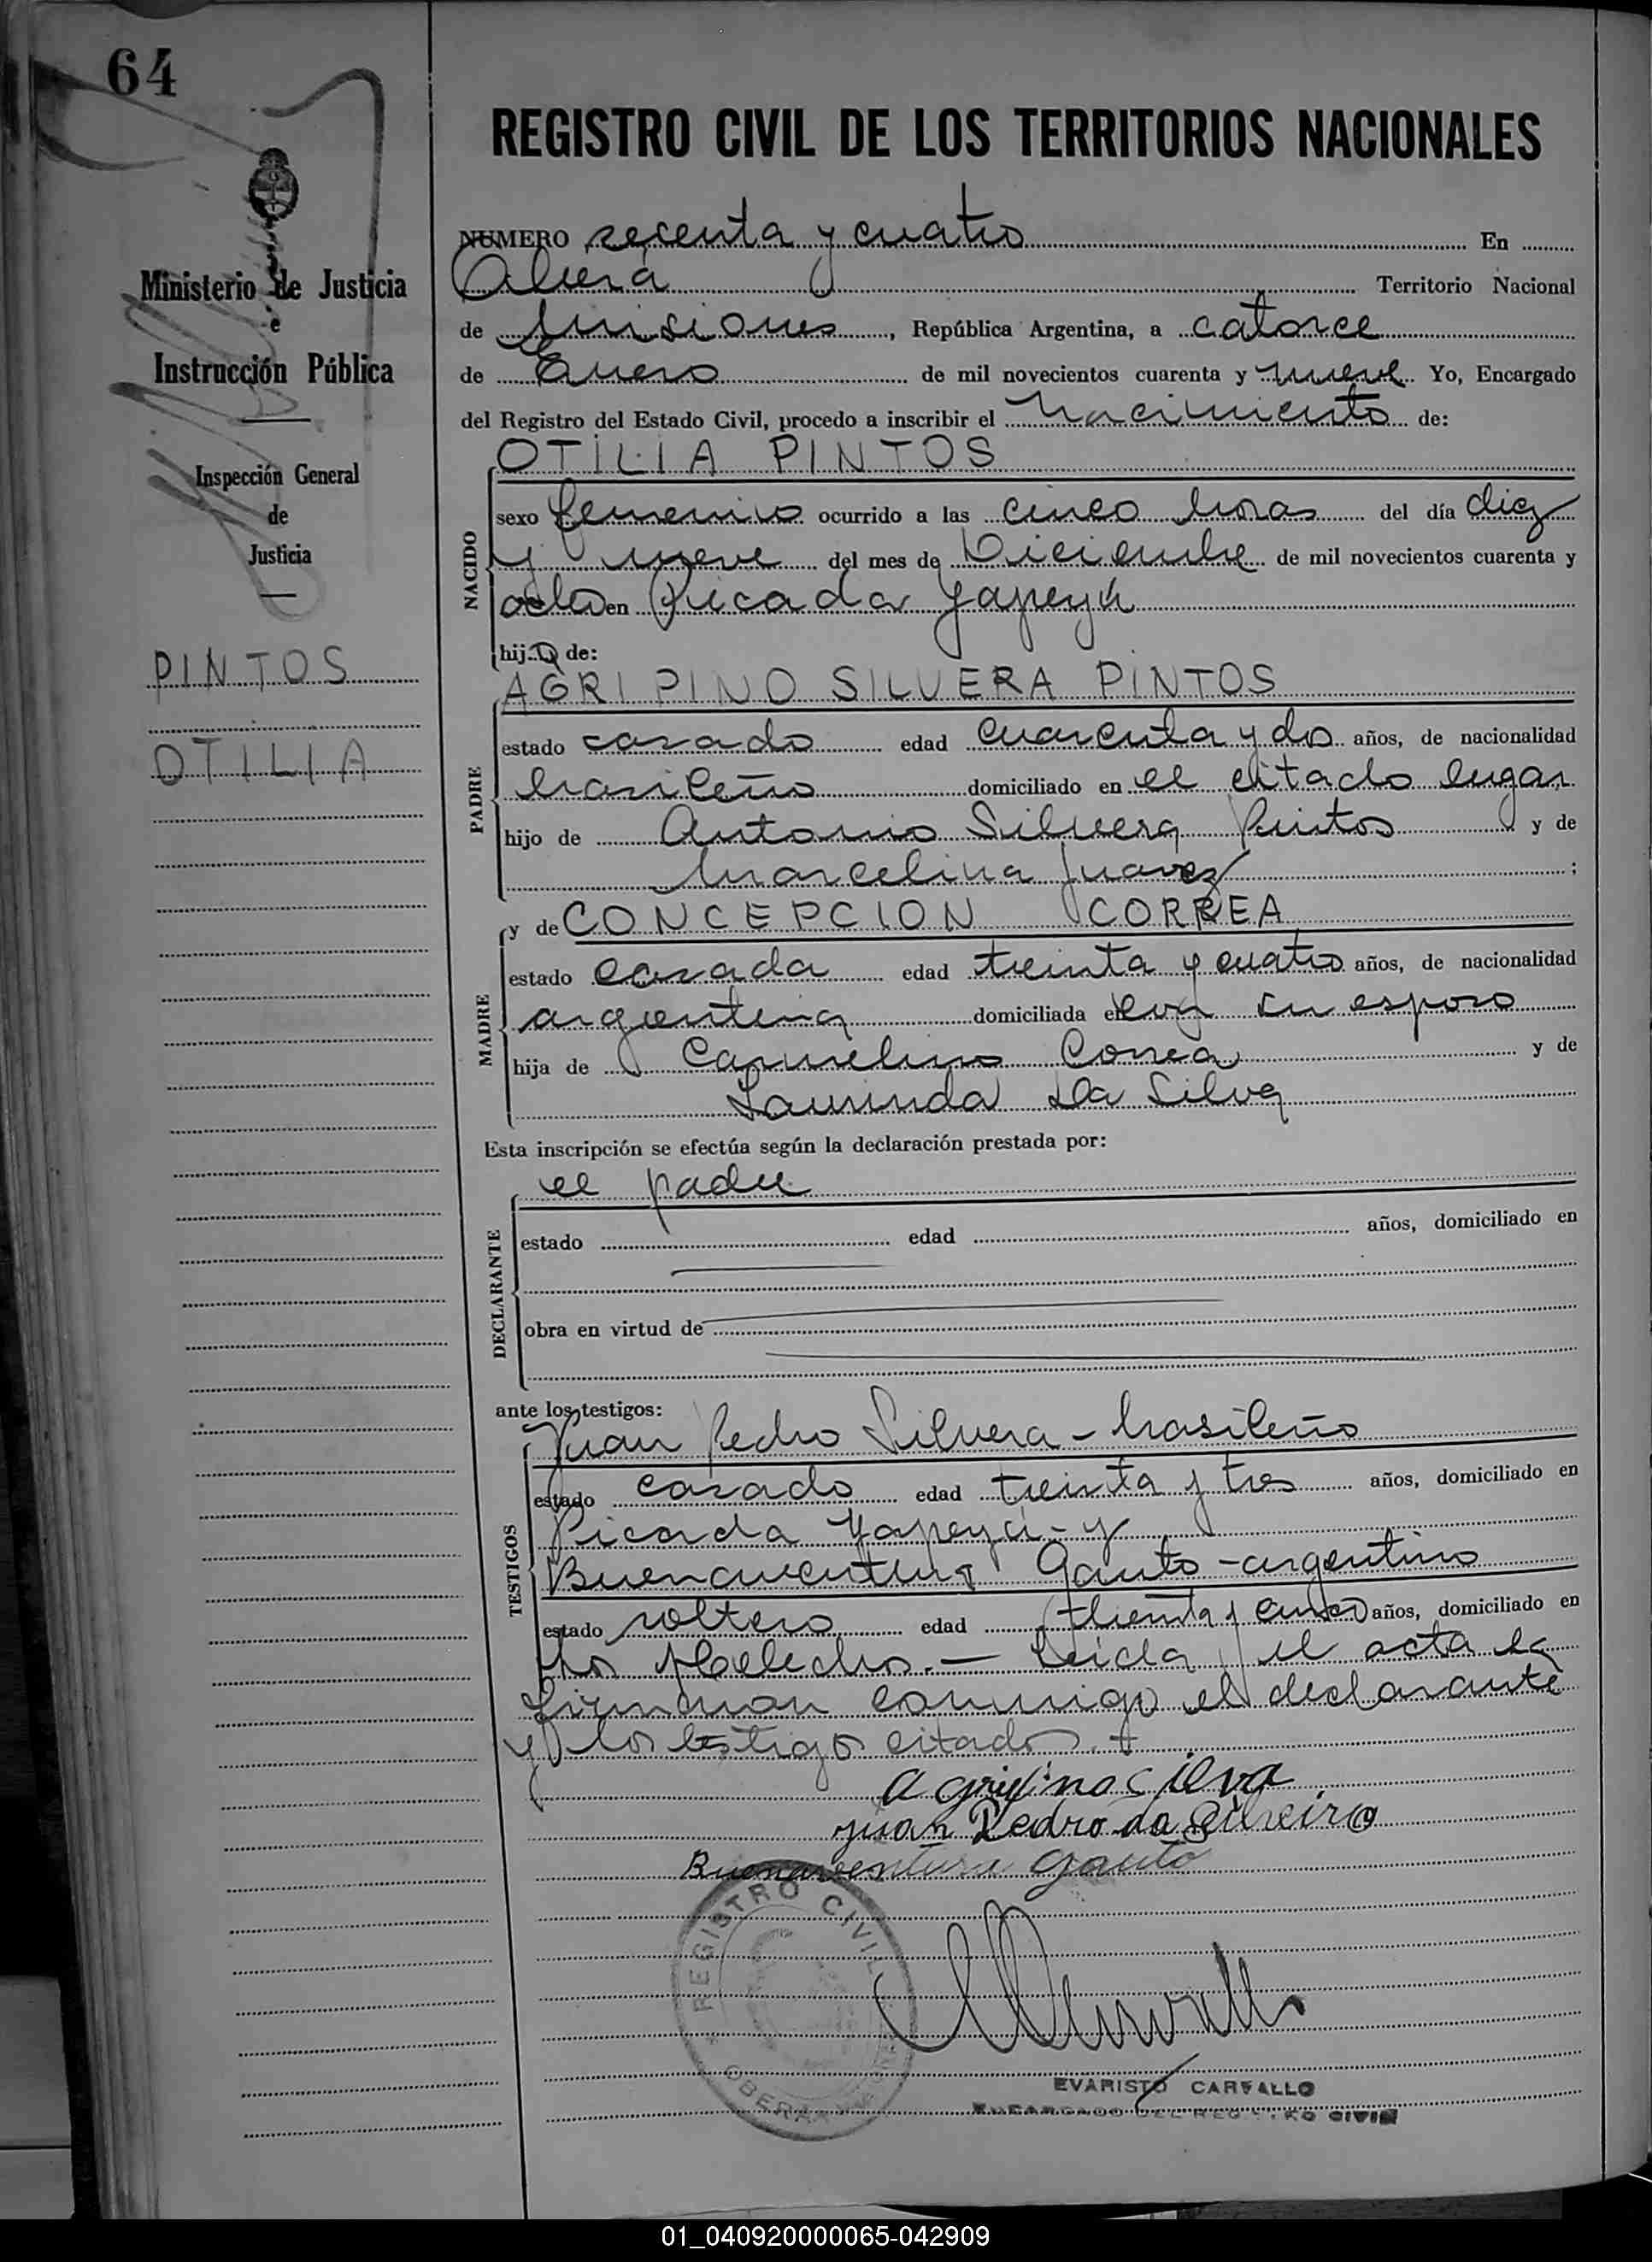 64
REGISTRO CIVIL DE LOS TERRITORIOS NACIONALES
Ministerio de Justicia
e
Instrucción Pública
Inspección General
de
Justicia
PINTOS
OTILIA
NUMERO sesenta y cuatro En
Oberá Territorio Nacional
de Misiones, República Argentina, a catorce
de Enero de mil novecientos cuarenta y nueve Yo, Encargado
del Registro del Estado Civil, procedo a inscribir el Nacimiento de:
OTILIA PINTOS
NACIDO
sexo femenino ocurrido a las cinco horas del día diez
y nueve del mes de Diciembre de mil novecientos cuarenta y
ocho en Picada Yapeyú
hija de:
AGRIPINO SILVERA PINTOS
PADRE
estado casado edad cuarenta y dos años, de nacionalidad
brasileño domiciliado en el citado lugar
hijo de Antonio Silvera Pintos y de
Marcelina Juarez ;
y de CONCEPCION CORREA
MADRE
estado casada edad treinta y cuatro años, de nacionalidad
argentina domiciliada en con su esposo
hija de Carmelino Correa y de
Laurinda Da Silva
Esta inscripción se efectúa según la declaración prestada por:
el padre
DECLARANTE
estado edad años, domiciliado en
obra en virtud de
ante los testigos:
Juan Pedro Silvera - brasileño
TESTIGOS
estado casado edad treinta y tres años, domiciliado en
Picada Yapeyú - y
Buenaventura Gauto - argentino
estado soltero edad treinta y cinco años, domiciliado en
Los Helechos. - Leida el acta la
firmaron conmigo el declarante
y los testigos citados. +
Agripino Cilva
Juan Pedro da Silveira
Buenaventura Gauto
REGISTRO CIVIL
OBERÁ
EVARISTO CARVALLO
ENCARGADO DEL REGISTRO CIVIL
01_040920000065-042909